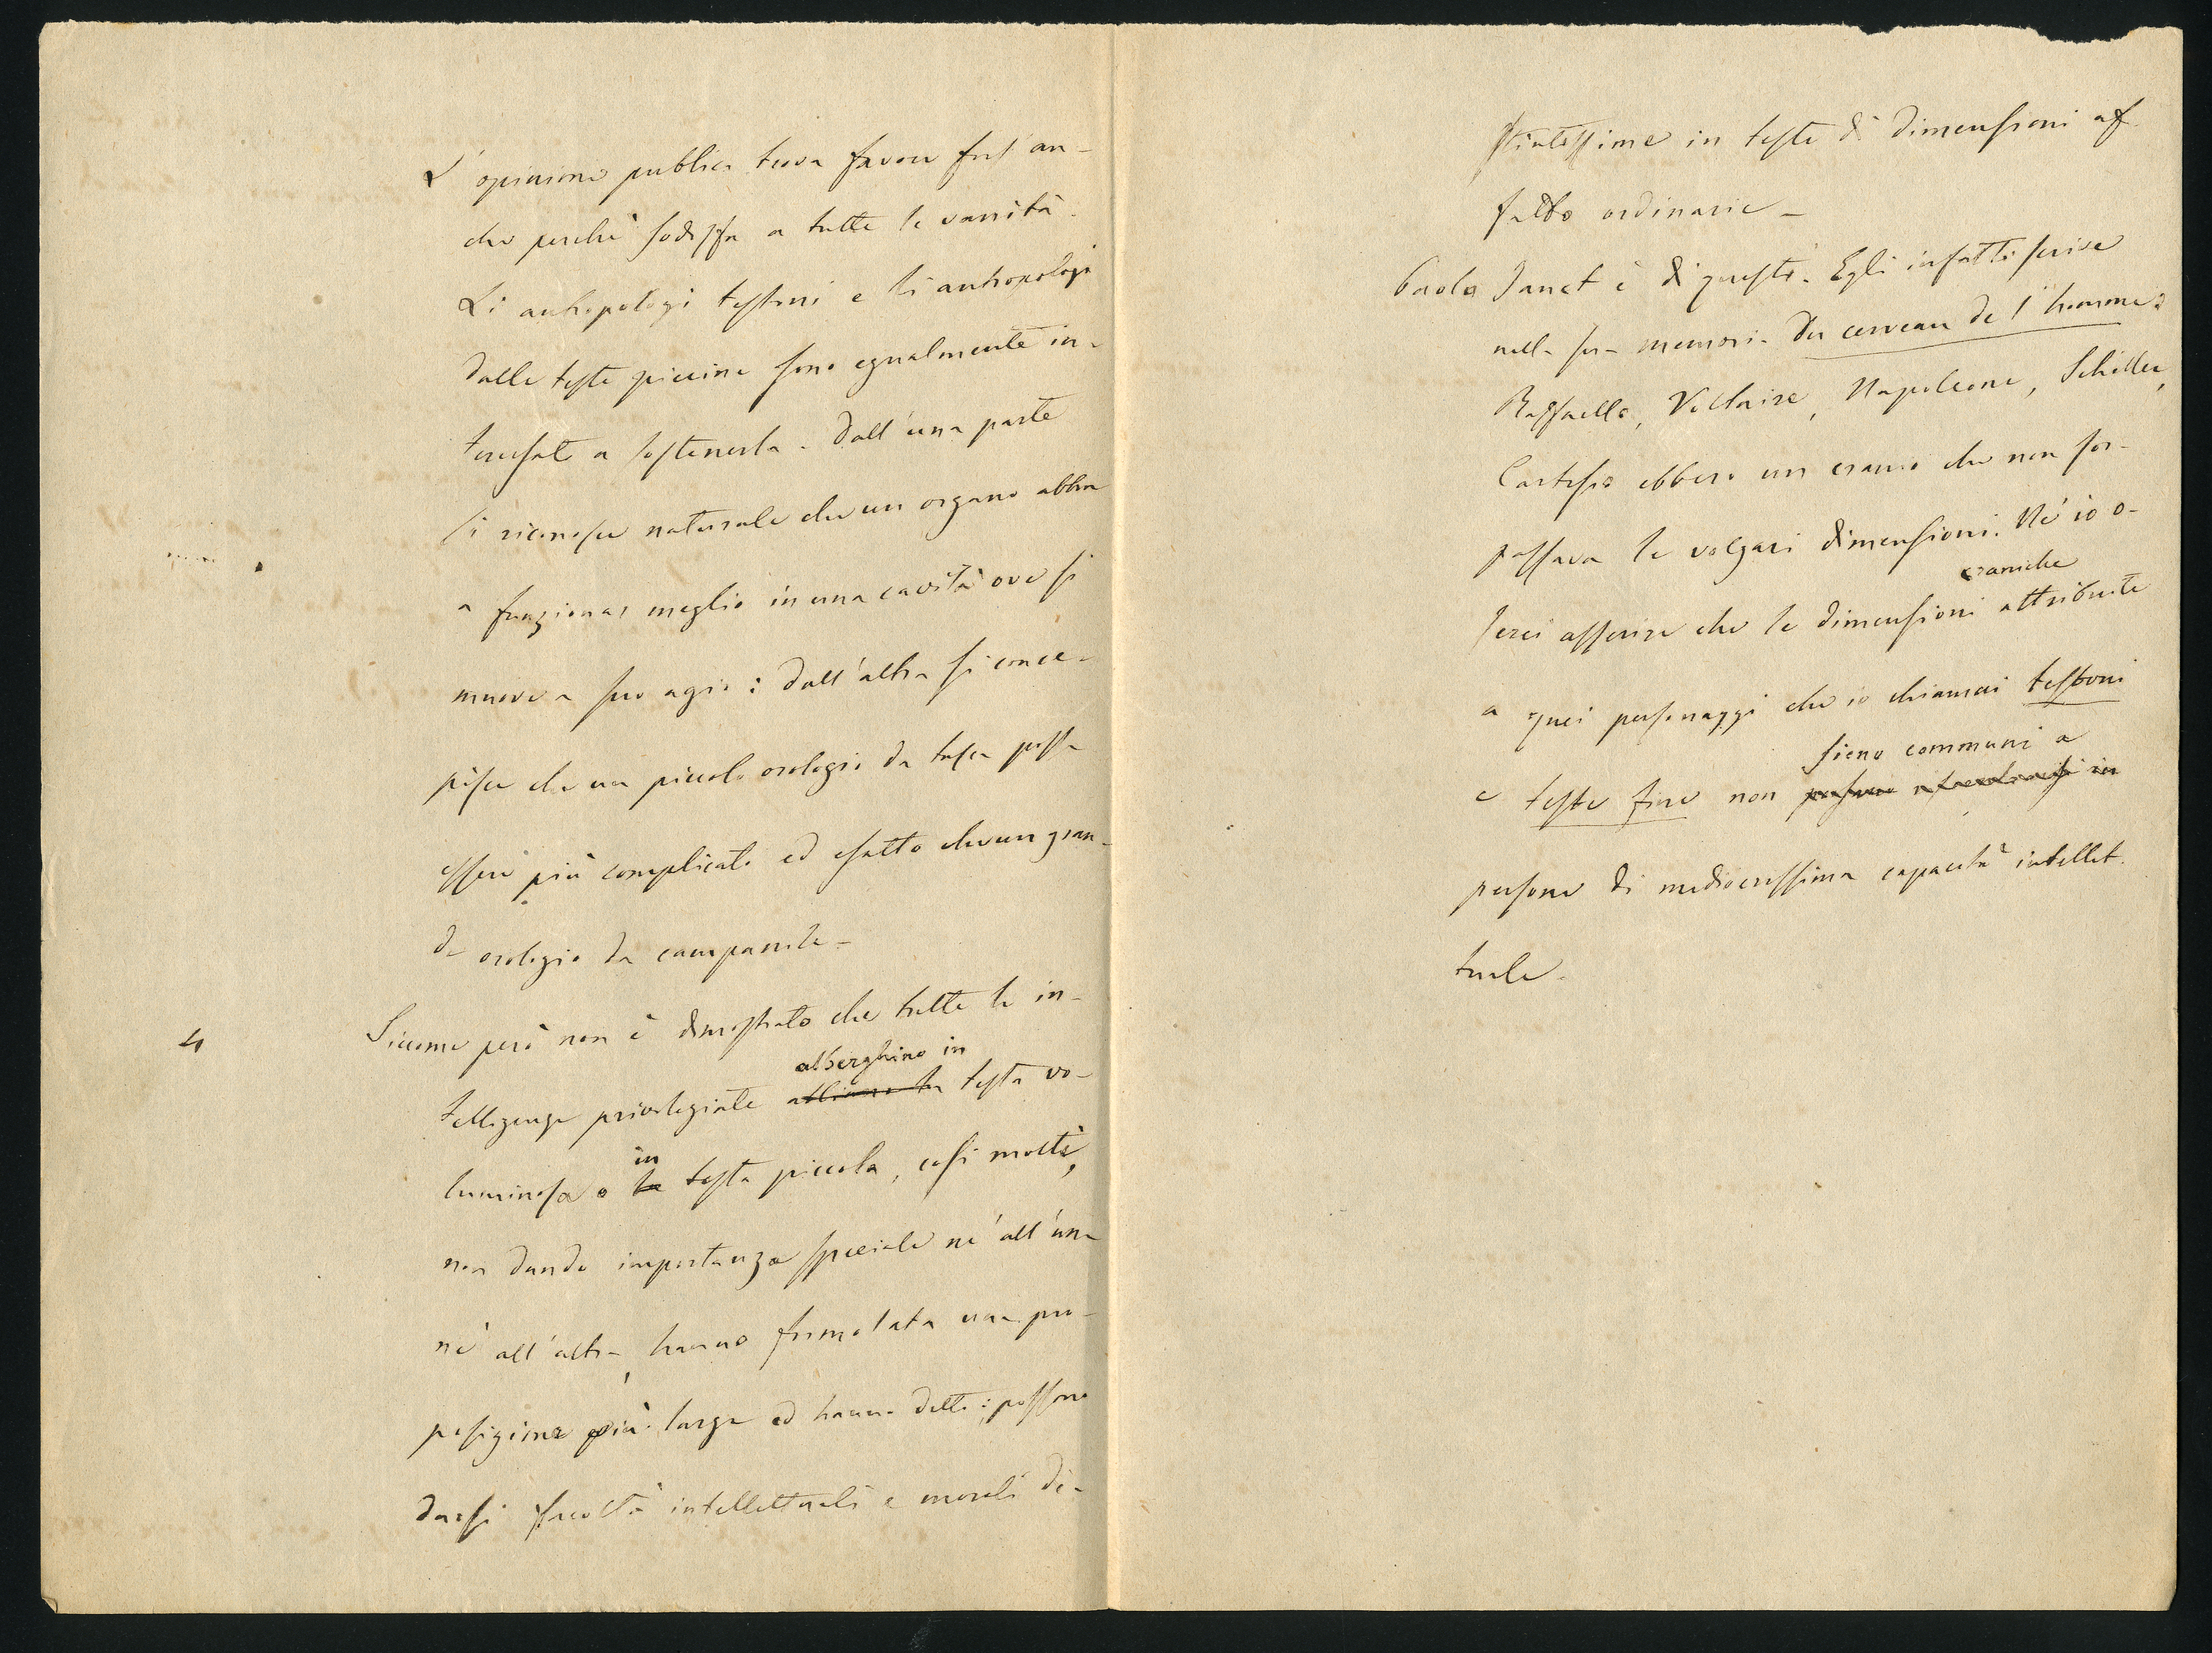 L'opinione publica trova favore fors' an-
che perchè sodisfa a tutte le vanità.
Li antropologi testoni e li antropologi
dalle teste piccine sono egualmente in-
teressate a sostenerla. Dall'una parte
si riconosce naturale che un organo abbia
a funzionar meglio in una cavità ove si
muove a suo agio: dall'altra si conce-
pisce che un piccolo orologio da tasca possa
essere più complicato ed esatto che un gran-
de orologio da campanile_
4
Siccome però non è dimostrato che tutte le in-
alberghino in
telligenze privilegiate abbiano la testa vo-
in
luminosa o la testa piccola, così molti,
non dando importanza speciale nè all'una
nè all'altra, hanno formolata una pro-
posizione più larga ed hanno detto: possono
darsi facoltà intellettuali e morali di-
stintissime in teste di dimensioni af-
fatto ordinarie_
Paolo Janet è di questi. Egli infatti scrive
nella sua memoria Du cerveau de l'homme:
Raffaello, Voltaire, Napoleone, Schiller,
Cartesio ebbero un cranio che non sor-
passava le volgari dimensioni. Nè io o-
craniche
serei asserire che le dimensioni attribuite
a quei personaggi che io chiamai testoni
sieno communi a
e teste fine non possano in
persone di mediocrissima capacità intellet-
tuale.